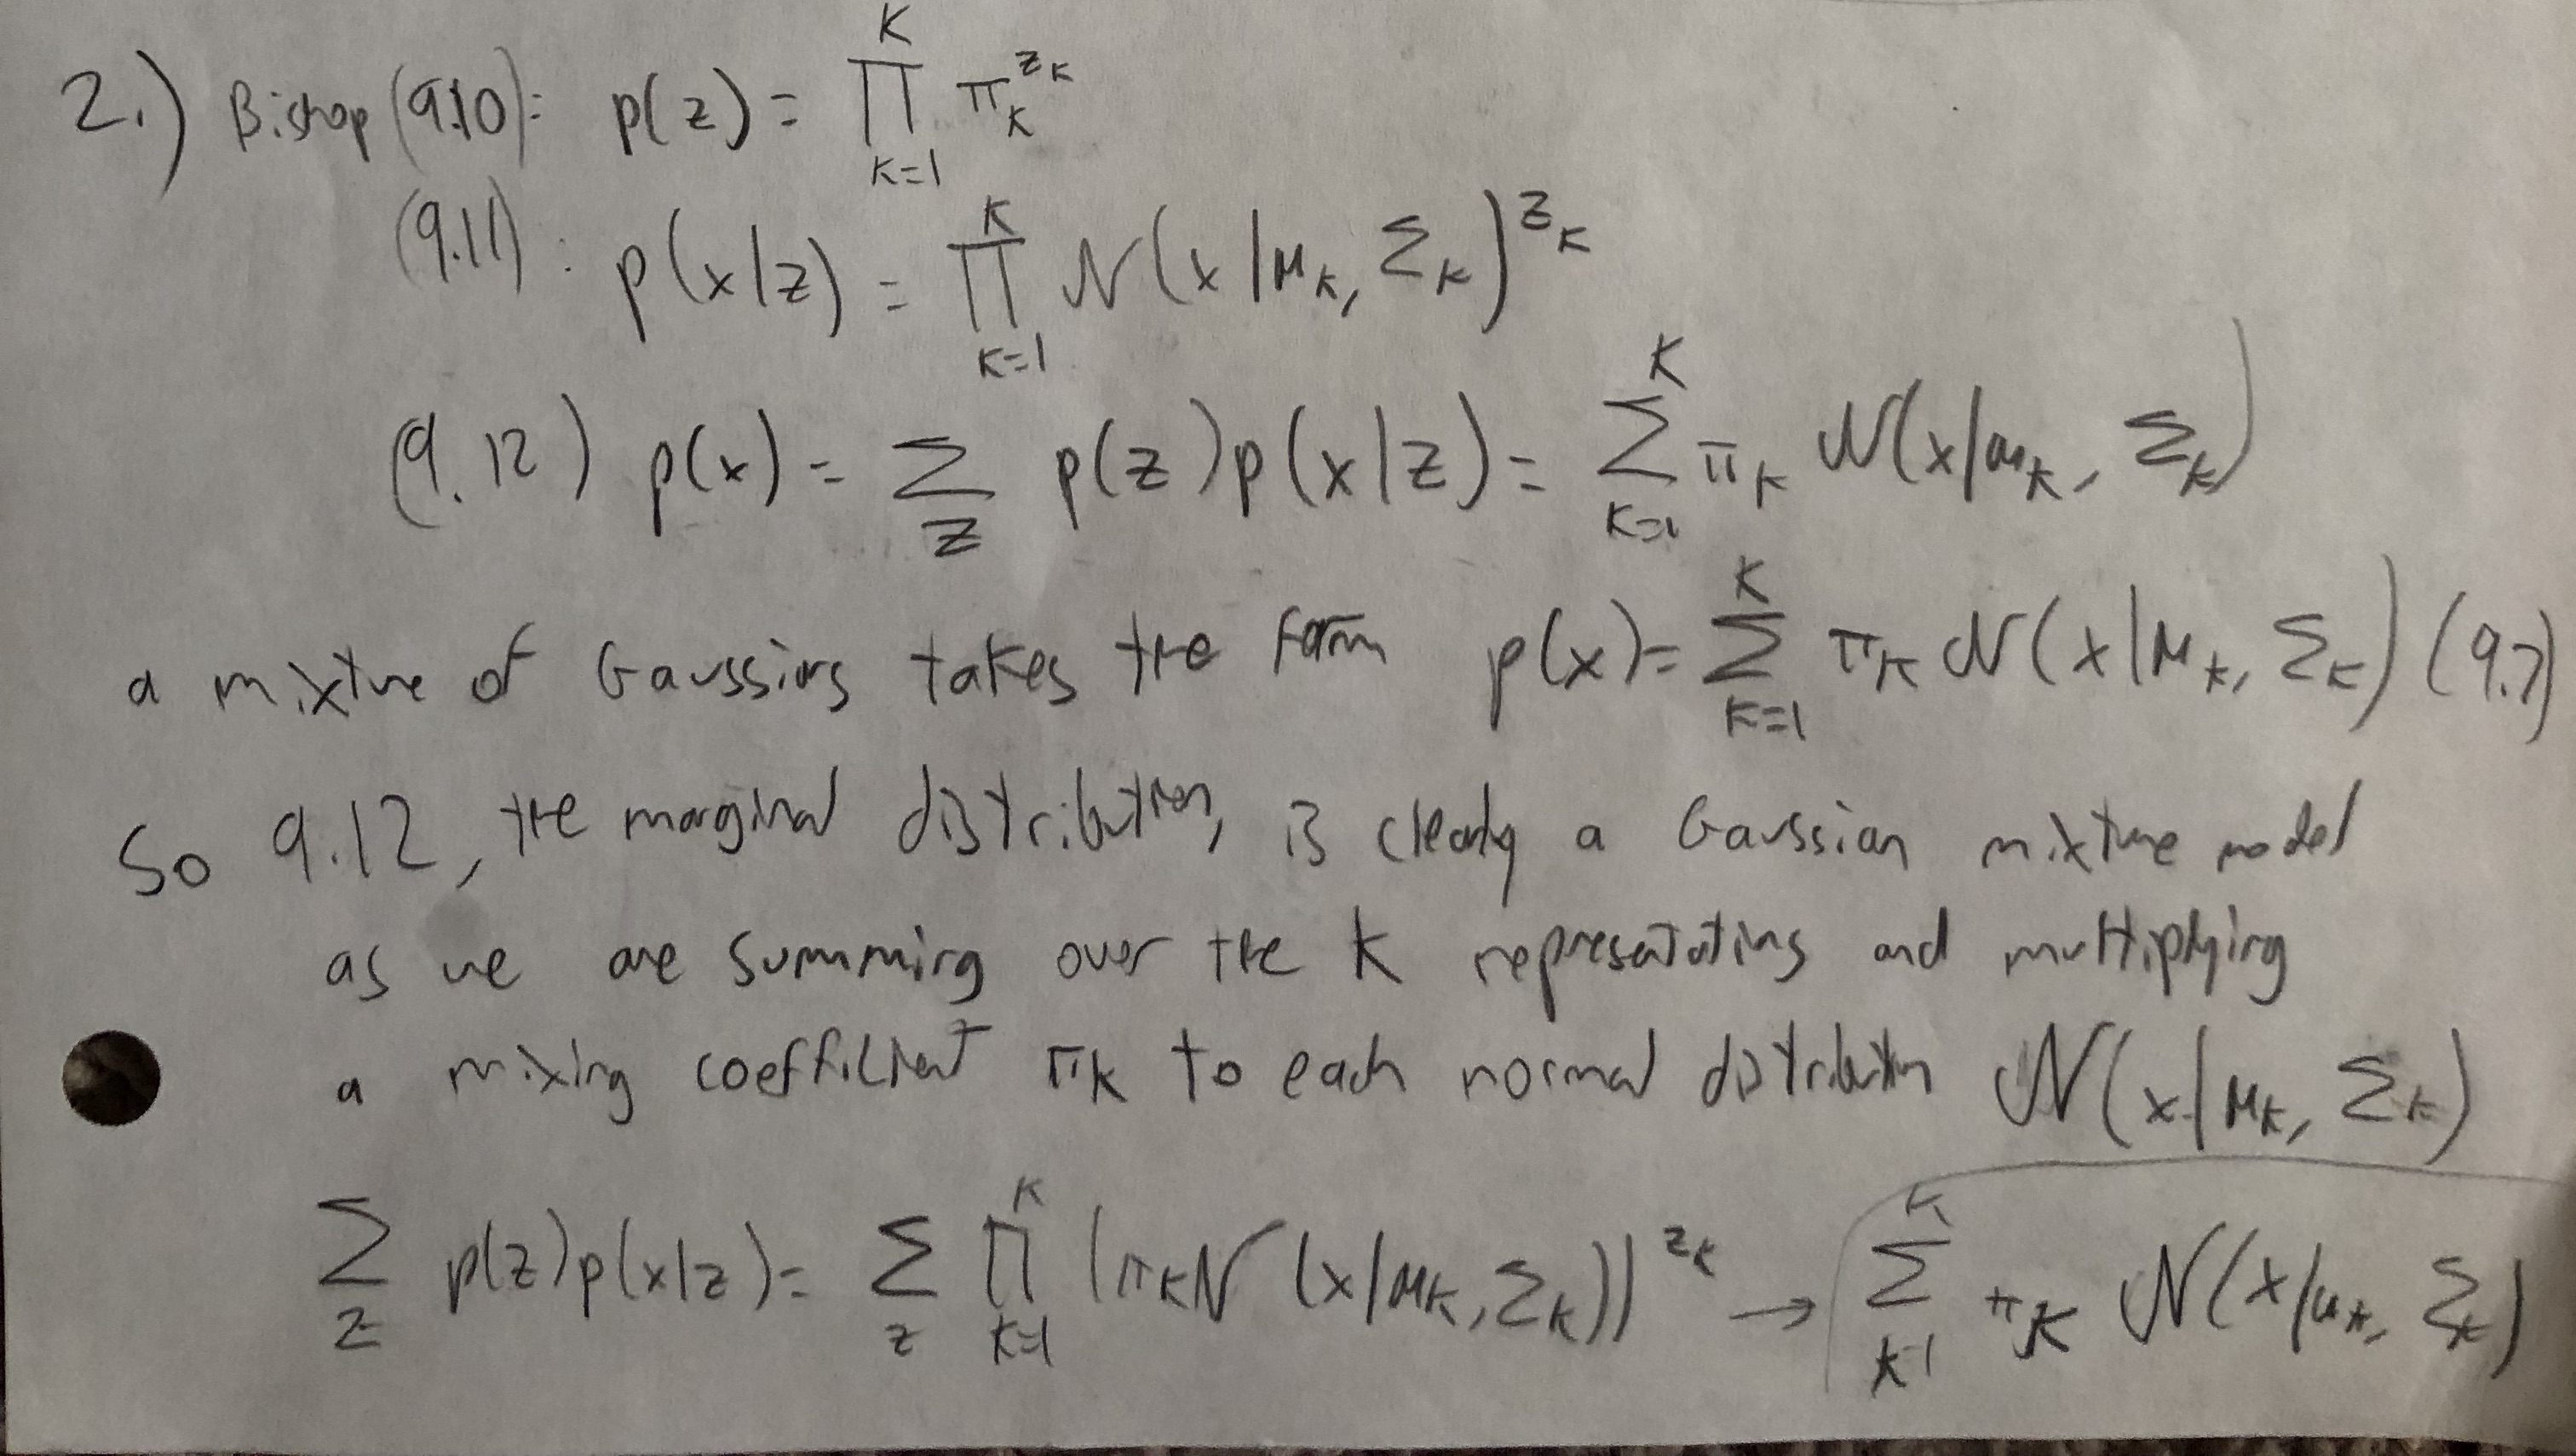 2.) Bishop (9.10): p(z) = ∏_{k=1}^{K} π_k^{z_k}
(9.11) : p(x|z) = ∏_{k=1}^{K} N(x|μ_k, Σ_k)^{z_k}
(9.12) p(x) = Σ_z p(z)p(x|z) = Σ_{k=1}^{K} π_k N(x|μ_k, Σ_k)
a mixture of Gaussians takes the form p(x) = Σ_{k=1}^{K} π_k N(x|μ_k, Σ_k) (9.7)
So 9.12, the marginal distribution, is clearly a Gaussian mixture model
as we are summing over the K representations and multiplying
a mixing coefficient π_k to each normal distribution N(x|μ_k, Σ_k)
Σ_z p(z)p(x|z) = Σ_z ∏_{k=1}^{K} (π_k N(x|μ_k, Σ_k))^{z_k} → Σ_{k=1}^{K} π_k N(x|μ_k, Σ_k)